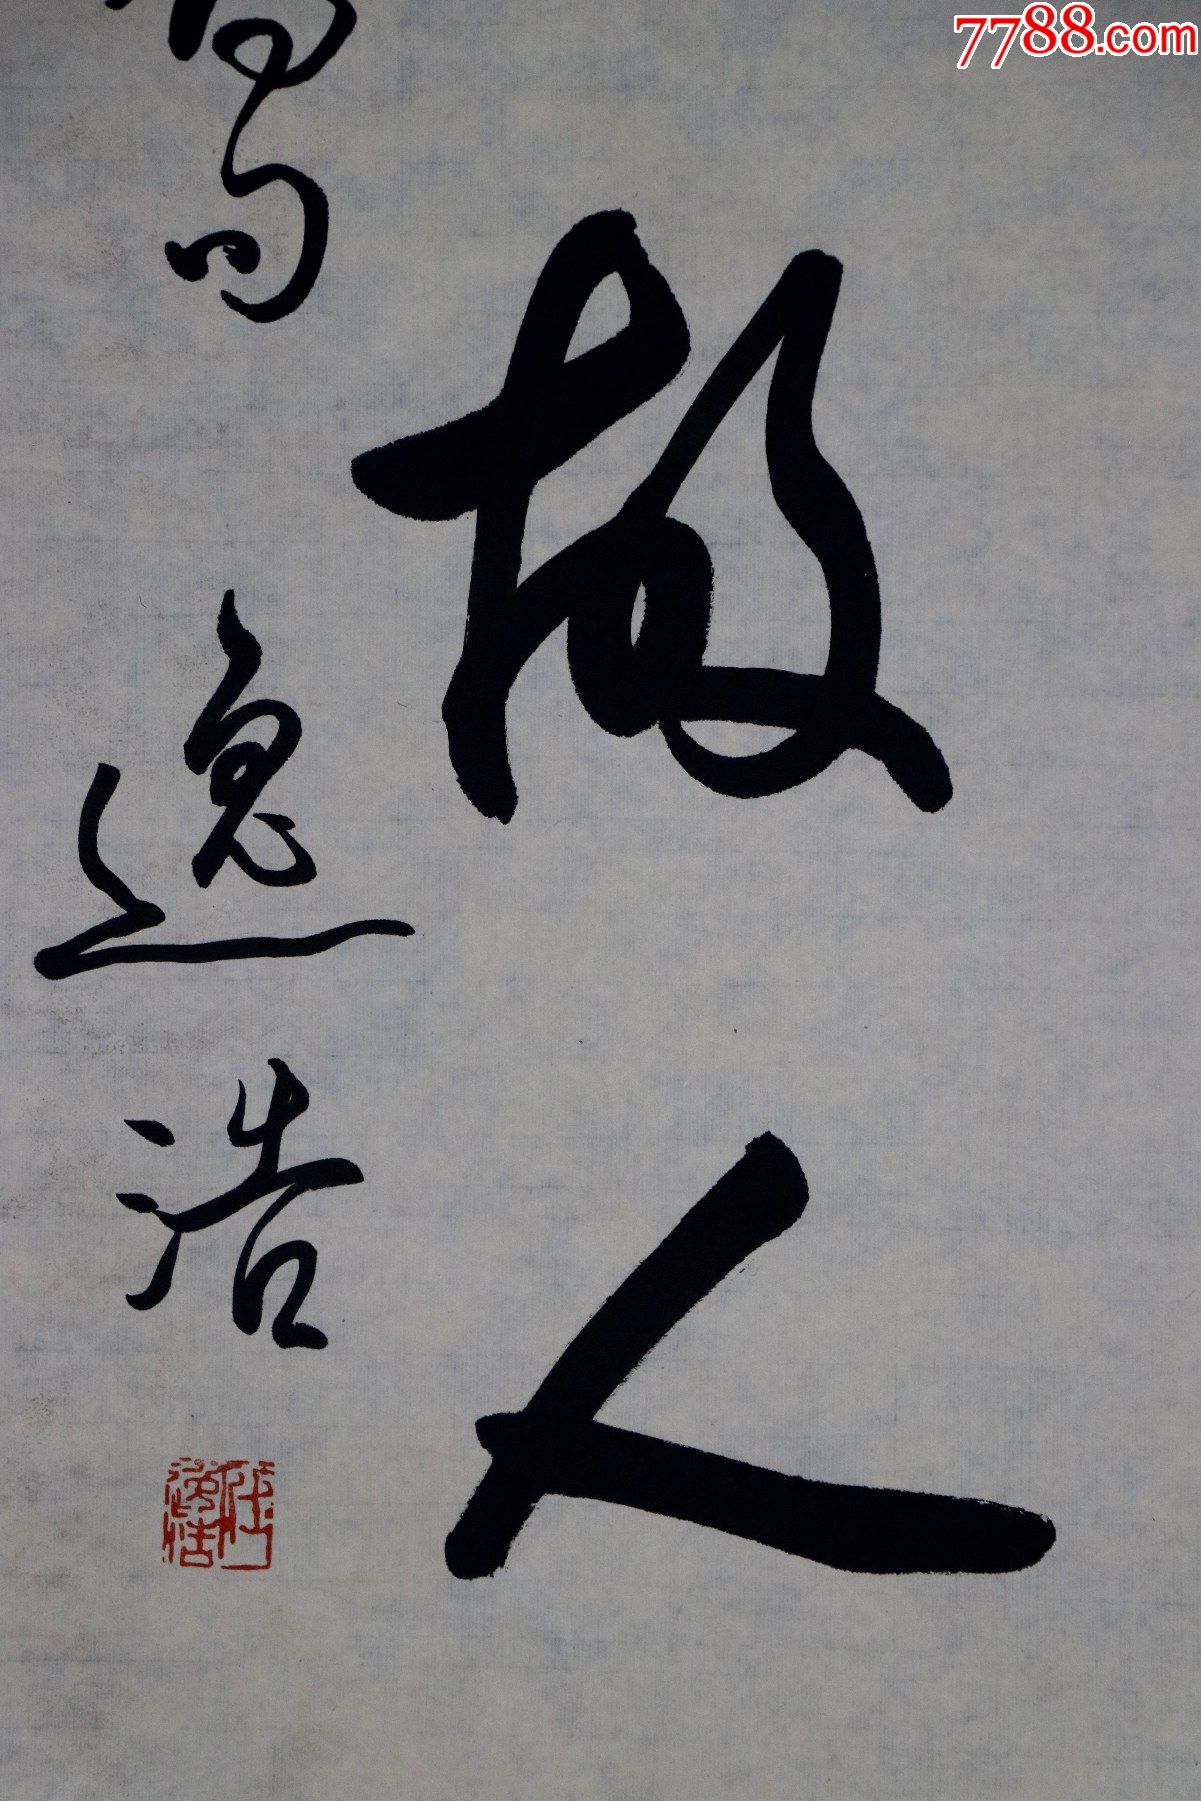 7788.com
故人
逸浩